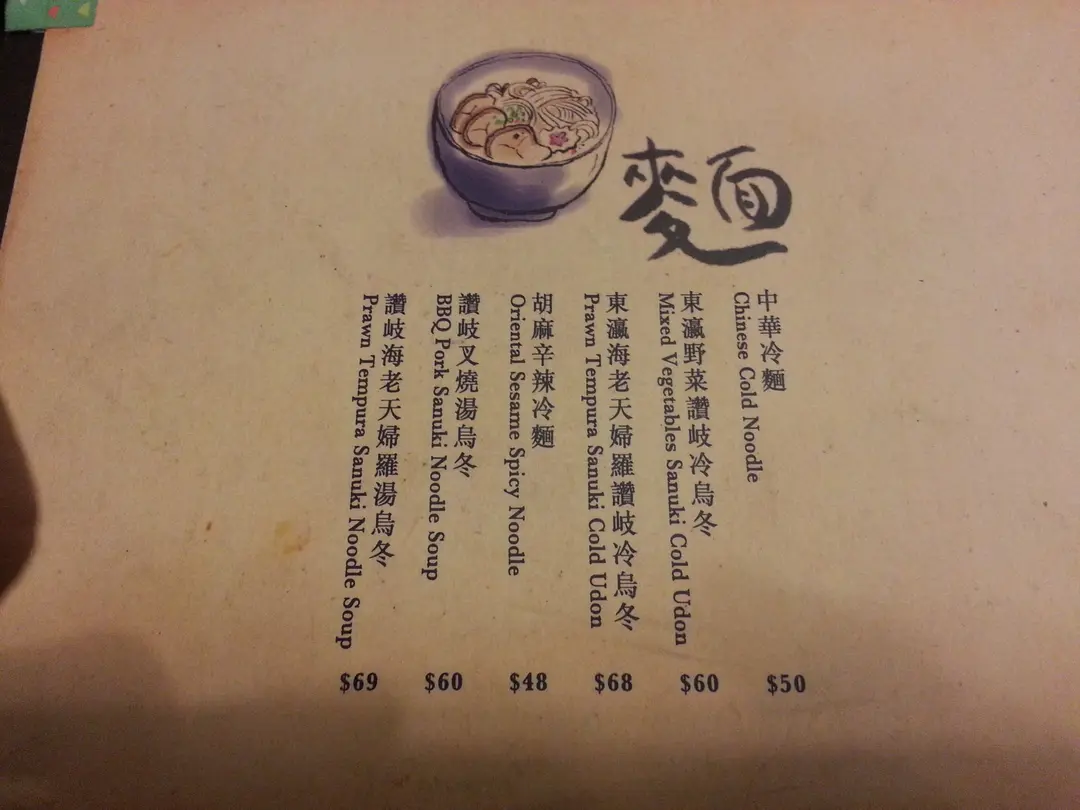 麵
中華冷麵
Chinese Cold Noodle
$50
東瀛野菜讚岐冷烏冬
Mixed Vegetables Sanuki Cold Udon
$60
東瀛海老天婦羅讚岐冷烏冬
Prawn Tempura Sanuki Cold Udon
$68
胡麻辛辣冷麵
Oriental Sesame Spicy Noodle
$48
讚岐叉燒湯烏冬
BBQ Pork Sanuki Noodle Soup
$60
讚岐海老天婦羅湯烏冬
Prawn Tempura Sanuki Noodle Soup
$69